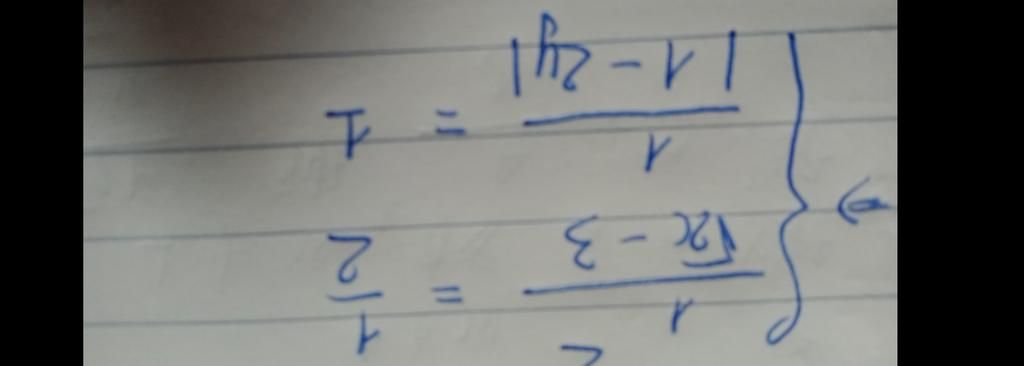 ⇒ { 1/(√x − 3) = 1/2
1/|1 − 2y| = 1